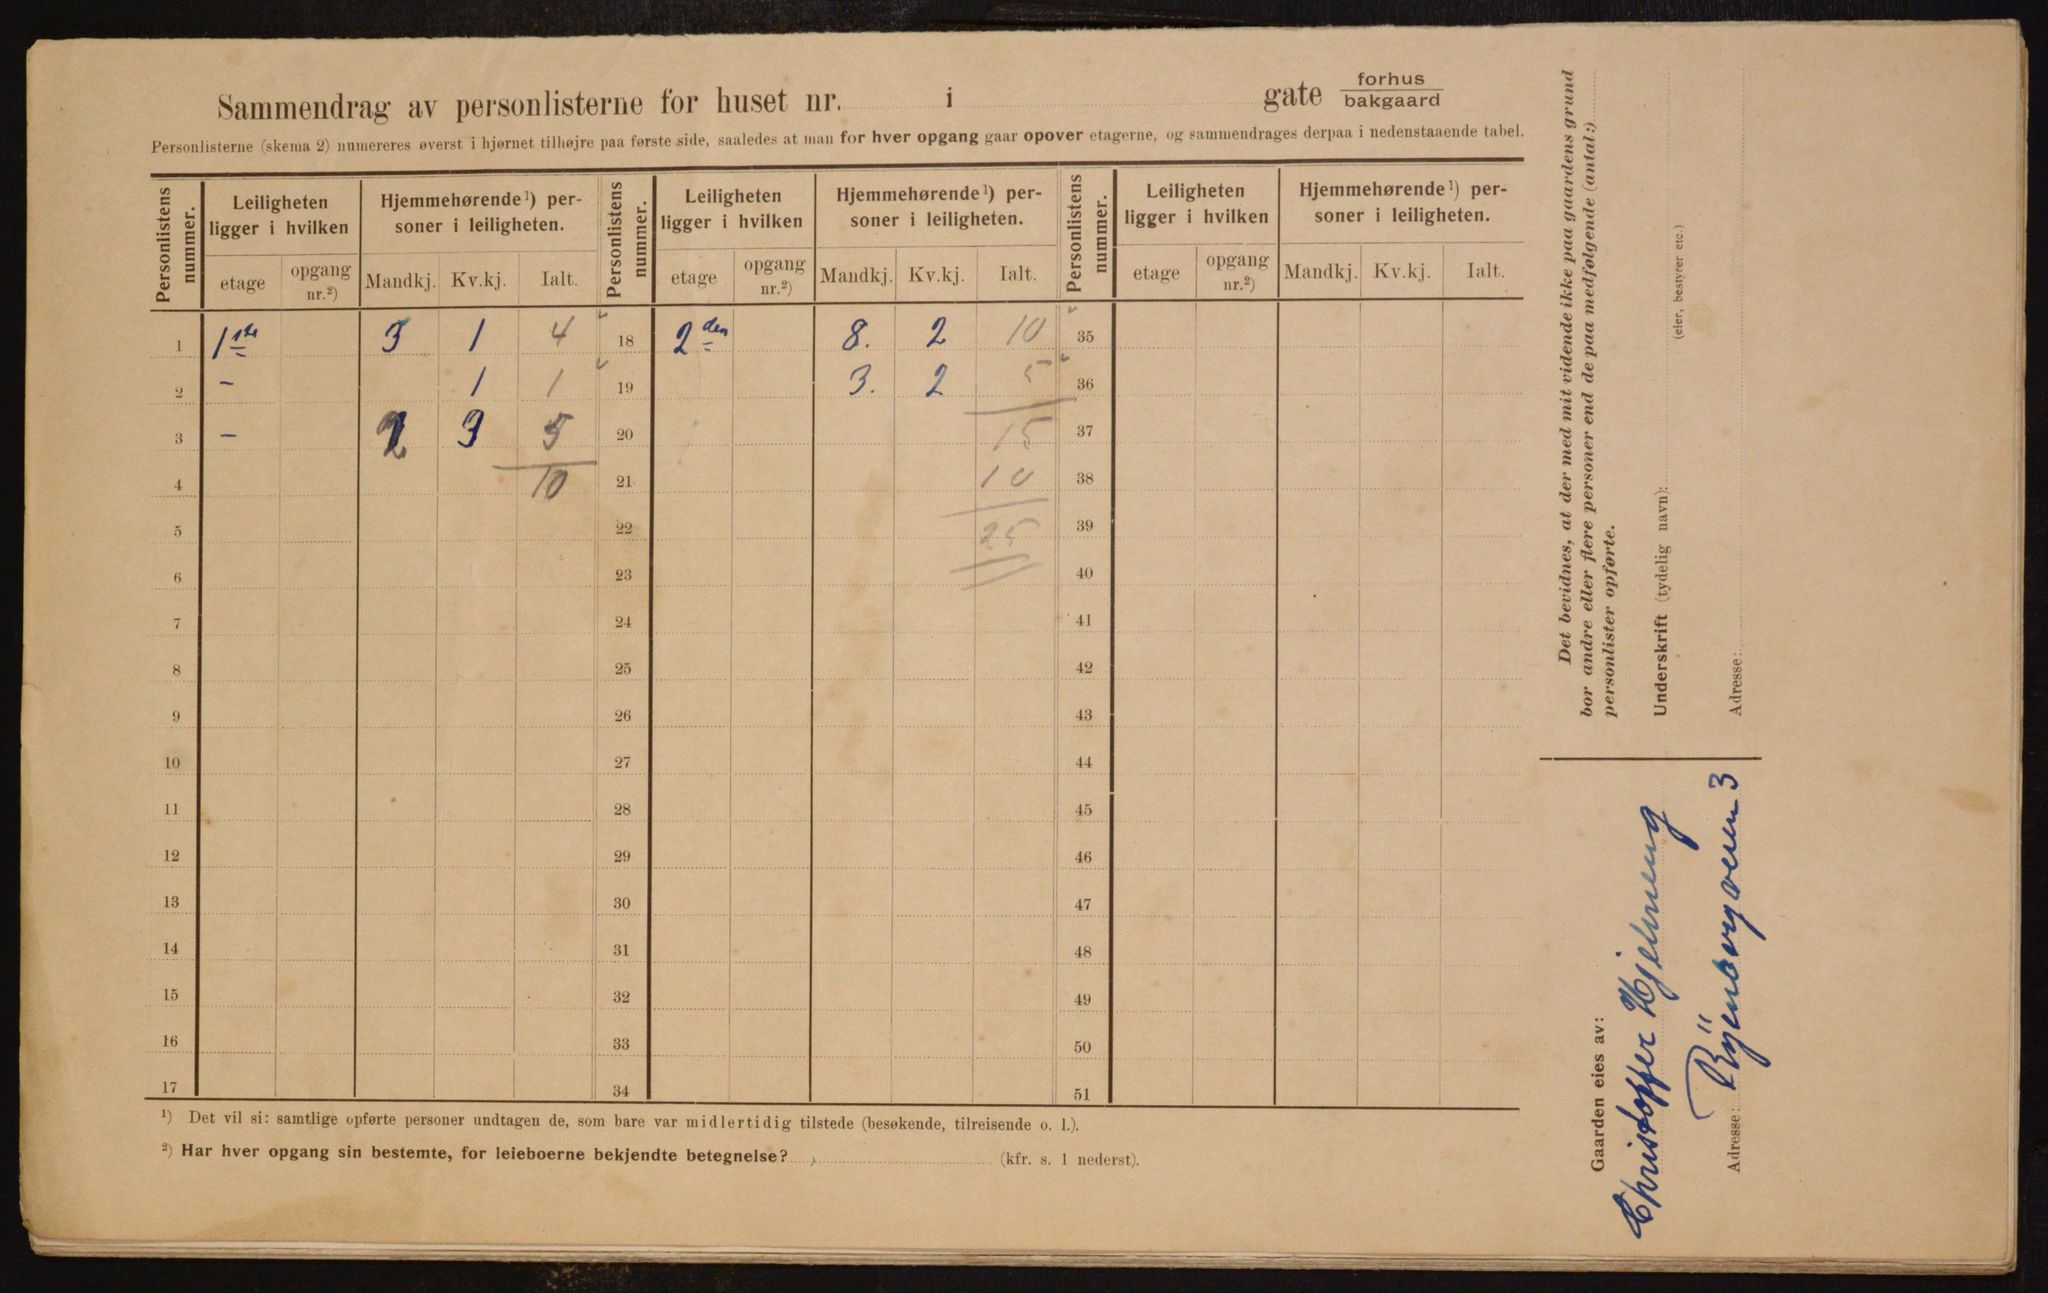 Sammendrag av personlisterne for huset nr. i gate forhus
bakgaard
Personlisterne (skema 2) numereres øverst i hjørnet tilhøjre paa første side, saaledes at man for hver opgang gaar opover etagerne, og sammendrages derpaa i nedenstaaende tabel.
Personlistens nummer. Leiligheten ligger i hvilken Hjemmehørende¹) per-soner i leiligheten. Personlistens nummer. Leiligheten ligger i hvilken Hjemmehørende¹) per-soner i leiligheten. Personlistens nummer. Leiligheten ligger i hvilken Hjemmehørende¹) per-soner i leiligheten.
etage opgang nr.²) Mandkj. Kv.kj. Ialt. etage opgang nr.²) Mandkj. Kv.kj. Ialt. etage opgang nr.²) Mandkj. Kv.kj. Ialt.
1 1ste 3 1 4 18 2den 8. 2 10 35
2 - 1 1 19 3. 2 5 36
3 - 2 3 5 20 15 37
4 10 21 10 38
5 22 25 39
6 23 40
7 24 41
8 25 42
9 26 43
10 27 44
11 28 45
12 29 46
13 30 47
14 31 48
15 32 49
16 33 50
17 34 51
¹) Det vil si: samtlige opførte personer undtagen de, som bare var midlertidig tilstede (besøkende, tilreisende o. l.).
²) Har hver opgang sin bestemte, for leieboerne bekjendte betegnelse? (kfr. s. 1 nederst).
Det bevidnes, at der med mit vidende ikke paa gaardens grund
bor andre eller flere personer end de paa medfølgende (antal:)
personlister opførte.
Underskrift (tydelig navn):
(eier, bestyrer etc.)
Adresse:
Gaarden eies av:
Christoffer Hjelmeng
Adresse: Ryenbergveien 3